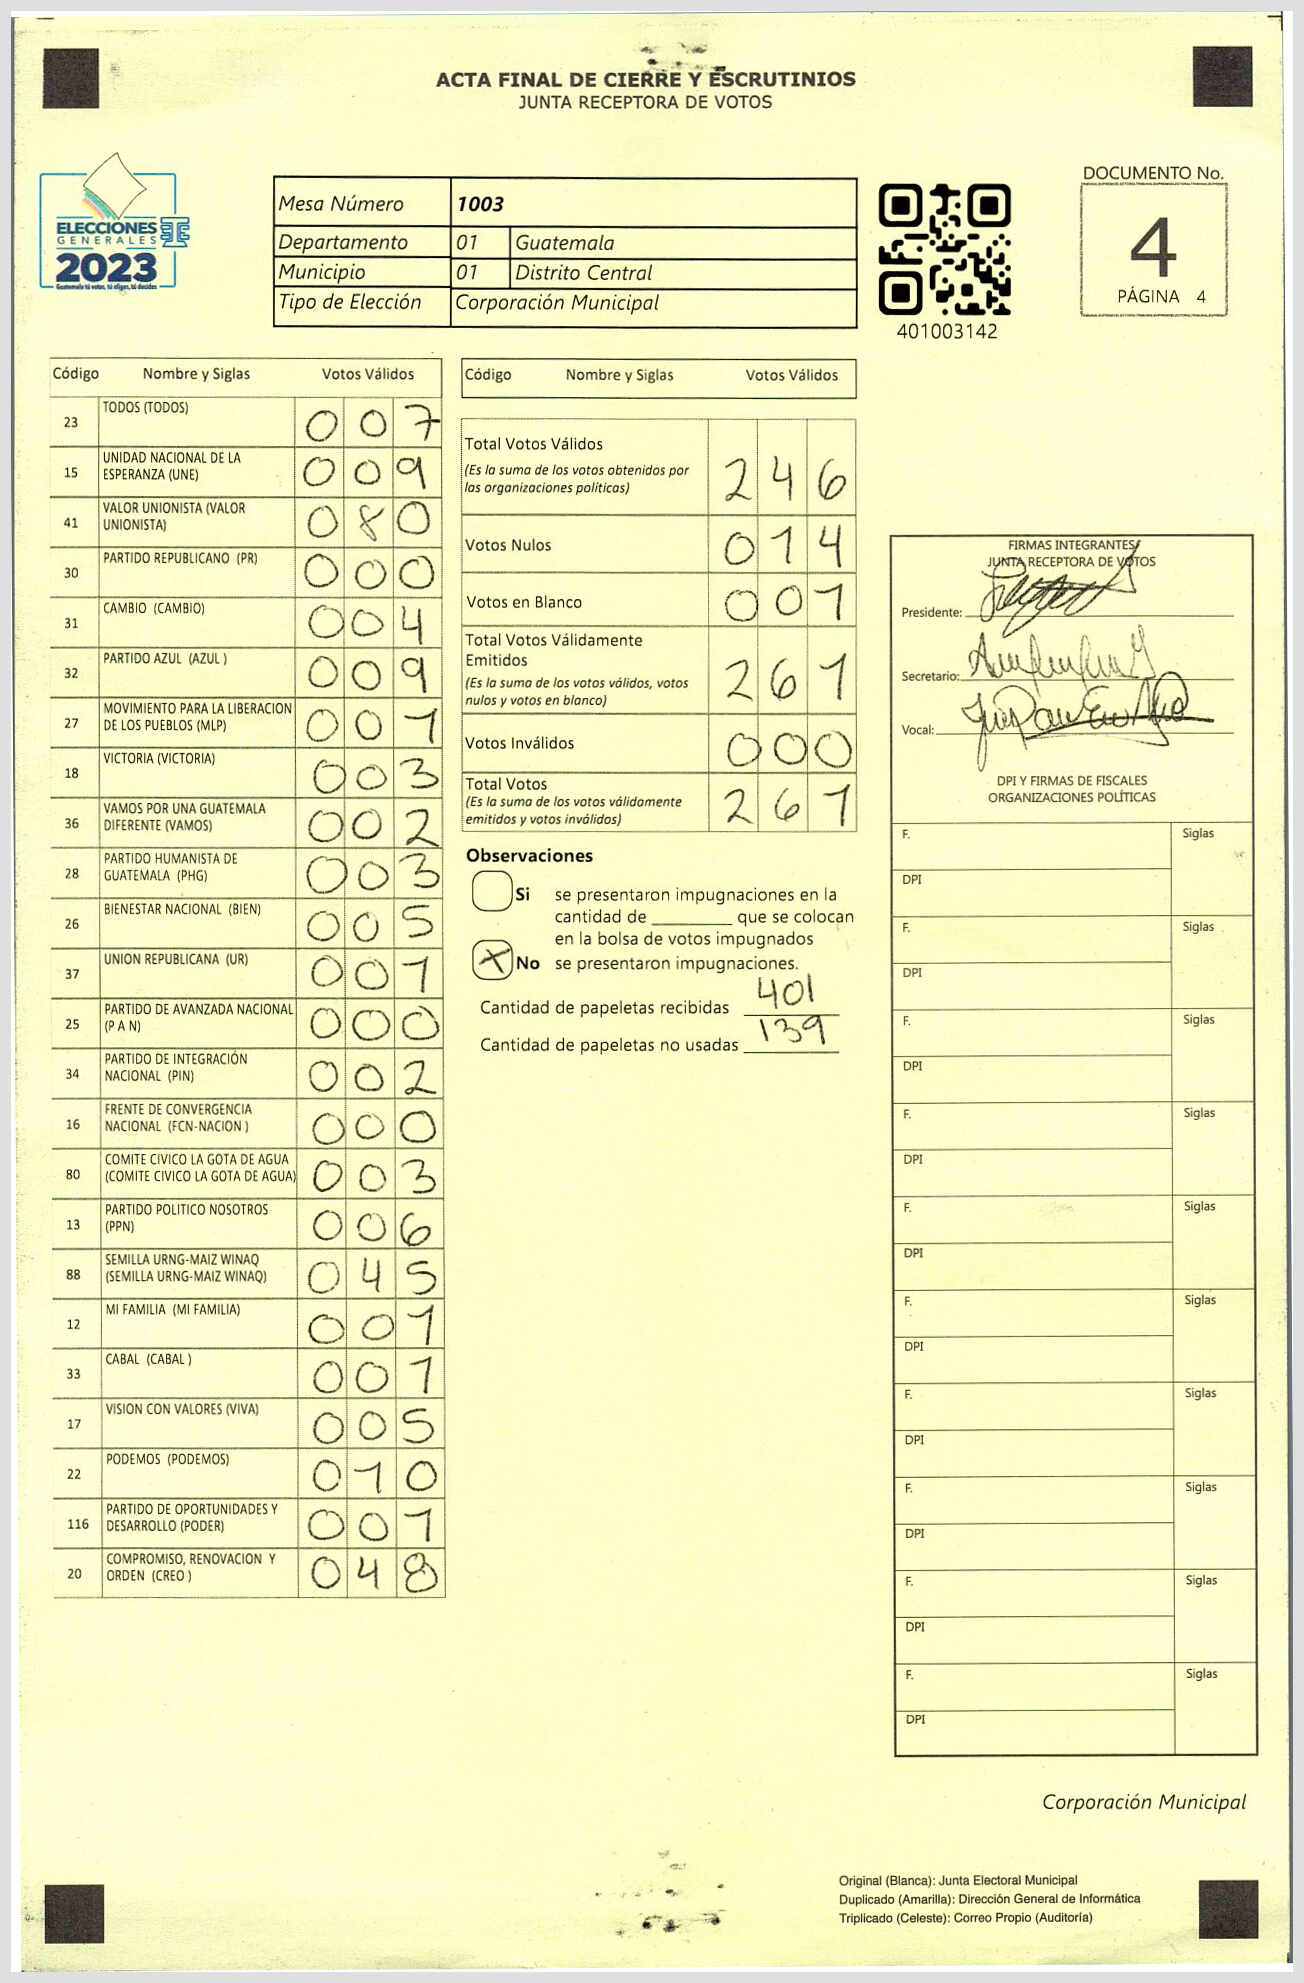 ACTA FINAL DE CIERRE Y ESCRUTINIOS
JUNTA RECEPTORA DE VOTOS
ELECCIONES
GENERALES
2023
Guatemala tú votas, tú eliges, tú decides
Mesa Número 1003
Departamento 01 Guatemala
Municipio 01 Distrito Central
Tipo de Elección Corporación Municipal
401003142
DOCUMENTO No.
4
PÁGINA 4
Código Nombre y Siglas Votos Válidos
23 TODOS (TODOS) 0 0 7
15 UNIDAD NACIONAL DE LA
ESPERANZA (UNE) 0 0 9
41 VALOR UNIONISTA (VALOR
UNIONISTA) 0 8 0
30 PARTIDO REPUBLICANO (PR) 0 0 0
31 CAMBIO (CAMBIO) 0 0 4
32 PARTIDO AZUL (AZUL ) 0 0 9
27 MOVIMIENTO PARA LA LIBERACION
DE LOS PUEBLOS (MLP) 0 0 1
18 VICTORIA (VICTORIA) 0 0 3
36 VAMOS POR UNA GUATEMALA
DIFERENTE (VAMOS) 0 0 2
28 PARTIDO HUMANISTA DE
GUATEMALA (PHG) 0 0 3
26 BIENESTAR NACIONAL (BIEN) 0 0 5
37 UNION REPUBLICANA (UR) 0 0 1
25 PARTIDO DE AVANZADA NACIONAL
(P A N) 0 0 0
34 PARTIDO DE INTEGRACIÓN
NACIONAL (PIN) 0 0 2
16 FRENTE DE CONVERGENCIA
NACIONAL (FCN-NACION ) 0 0 0
80 COMITE CIVICO LA GOTA DE AGUA
(COMITE CIVICO LA GOTA DE AGUA) 0 0 3
13 PARTIDO POLITICO NOSOTROS
(PPN) 0 0 6
88 SEMILLA URNG-MAIZ WINAQ
(SEMILLA URNG-MAIZ WINAQ) 0 4 5
12 MI FAMILIA (MI FAMILIA) 0 0 1
33 CABAL (CABAL ) 0 0 1
17 VISION CON VALORES (VIVA) 0 0 5
22 PODEMOS (PODEMOS) 0 1 0
116 PARTIDO DE OPORTUNIDADES Y
DESARROLLO (PODER) 0 0 1
20 COMPROMISO, RENOVACION Y
ORDEN (CREO ) 0 4 8
Código Nombre y Siglas Votos Válidos
Total Votos Válidos
(Es la suma de los votos obtenidos por
las organizaciones políticas) 2 4 6
Votos Nulos 0 1 4
Votos en Blanco 0 0 1
Total Votos Válidamente
Emitidos
(Es la suma de los votos válidos, votos
nulos y votos en blanco) 2 6 1
Votos Inválidos 0 0 0
Total Votos
(Es la suma de los votos válidamente
emitidos y votos inválidos) 2 6 1
Observaciones
Si se presentaron impugnaciones en la
cantidad de ________ que se colocan
en la bolsa de votos impugnados
X No se presentaron impugnaciones.
Cantidad de papeletas recibidas 401
Cantidad de papeletas no usadas 139
FIRMAS INTEGRANTES
JUNTA RECEPTORA DE VOTOS
Presidente:
Secretario:
Vocal:
DPI Y FIRMAS DE FISCALES
ORGANIZACIONES POLÍTICAS
F. Siglas
DPI
F. Siglas
DPI
F. Siglas
DPI
F. Siglas
DPI
F. Siglas
DPI
F. Siglas
DPI
F. Siglas
DPI
F. Siglas
DPI
F. Siglas
DPI
F. Siglas
DPI
Corporación Municipal
Original (Blanca): Junta Electoral Municipal
Duplicado (Amarilla): Dirección General de Informática
Triplicado (Celeste): Correo Propio (Auditoría)